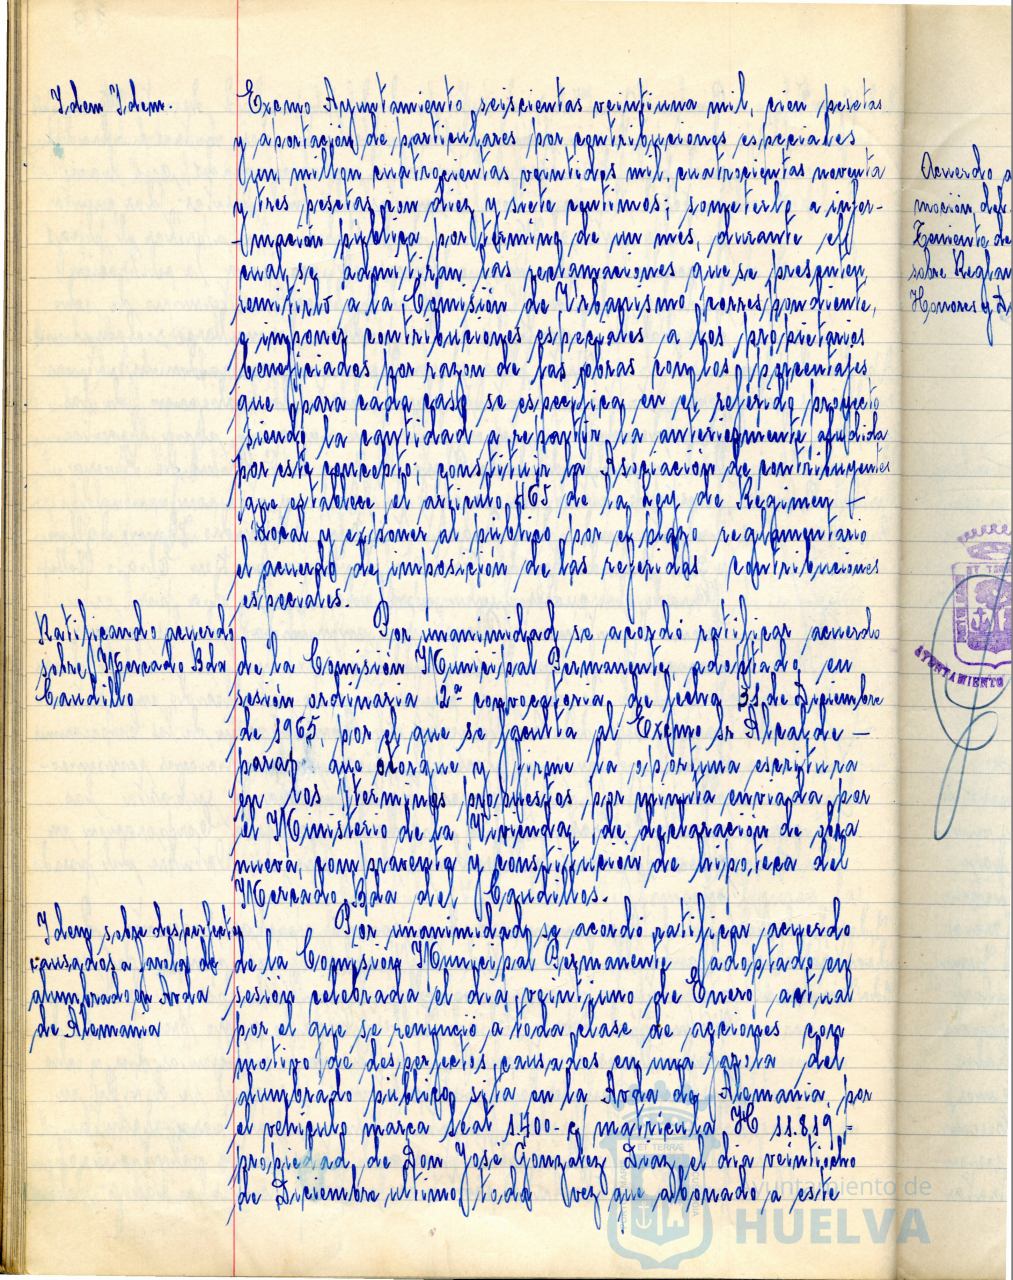 Idem Idem.
Excmo Ayuntamiento seiscientas veintiuna mil, cien pesetas
y aportación de particulares por contribuciones especiales
un millon cuatrocientas veintidos mil, cuatrocientas noventa
y tres pesetas con diez y siete centimos; someterlo a infor-
mación pública por término de un mes, durante el
cual se admitiran las reclamaciones que se presenten,
remitirlo a la Comisión de Urbanismo correspondiente,
e imponer contribuciones especiales a los propietarios
beneficiados por razon de las obras con los porcentajes
que para cada caso se especifica en el referido proyecto
siendo la cantidad a repartir la anteriormente aludida
por este concepto; constituir la Asociación de contribuyentes
que establece el articulo 465 de la Ley de Regimen
Local y exponer al público por el plazo reglamentario
el acuerdo de imposición de las referidas contribuciones
especiales.
Ratificando acuerdo
sobre Mercado Bda
Caudillo
Por unanimidad se acordó ratificar acuerdo
de la Comisión Municipal Permanente, adoptado en
sesión ordinaria 2ª convocatoria de fecha 31 de Diciembre
de 1965, por el que se faculta al Excmo Sr Alcalde —
para que otorgue y firme la oportuna escritura
en los términos propuestos por minuta enviada por
el Ministerio de la Vivienda, de declaración de obra
nueva, compraventa y constitución de hipoteca del
Mercado Bda del Caudillos.
Idem sobre desperfectos
causados a farola de
alumbrado en Avda
de Alemania
Por unanimidad se acordó ratificar acuerdo
de la Comisión Municipal Permanente adoptado en
sesión celebrada el dia veintiuno de Enero actual
por el que se renunció a toda clase de acciones con
motivo de desperfectos causados en una farola del
alumbrado público sita en la Avda de Alemania, por
el vehículo marca Seat 1.400-C, matrícula H 11.819,
propiedad de Don José Gonzalez Diaz el dia veintiocho
de Diciembre ultimo toda vez que abonado a este
Acuerdo
moción del
Teniente de
sobre Reglam
Honores y
AYUNTAMIENTO
ayuntamiento de
HUELVA